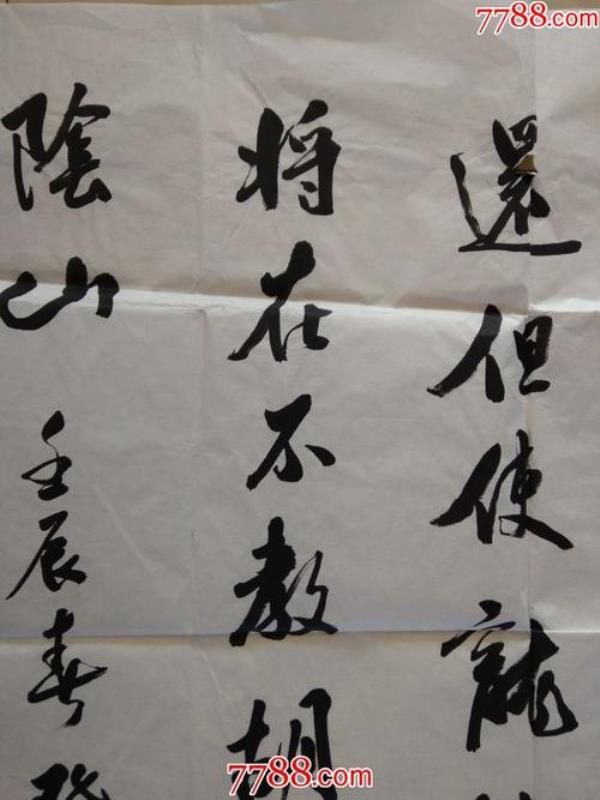 7788.com
還但使龍
将在不教胡
陰山
壬辰春
7788.com